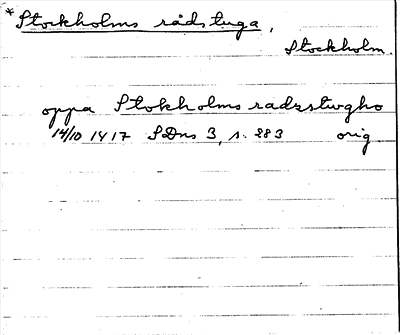 *Stockholms rådstuga,
Stockholm.
oppa Stokholms radzstwgho
14/10 1417 SDns 3, s. 283 orig